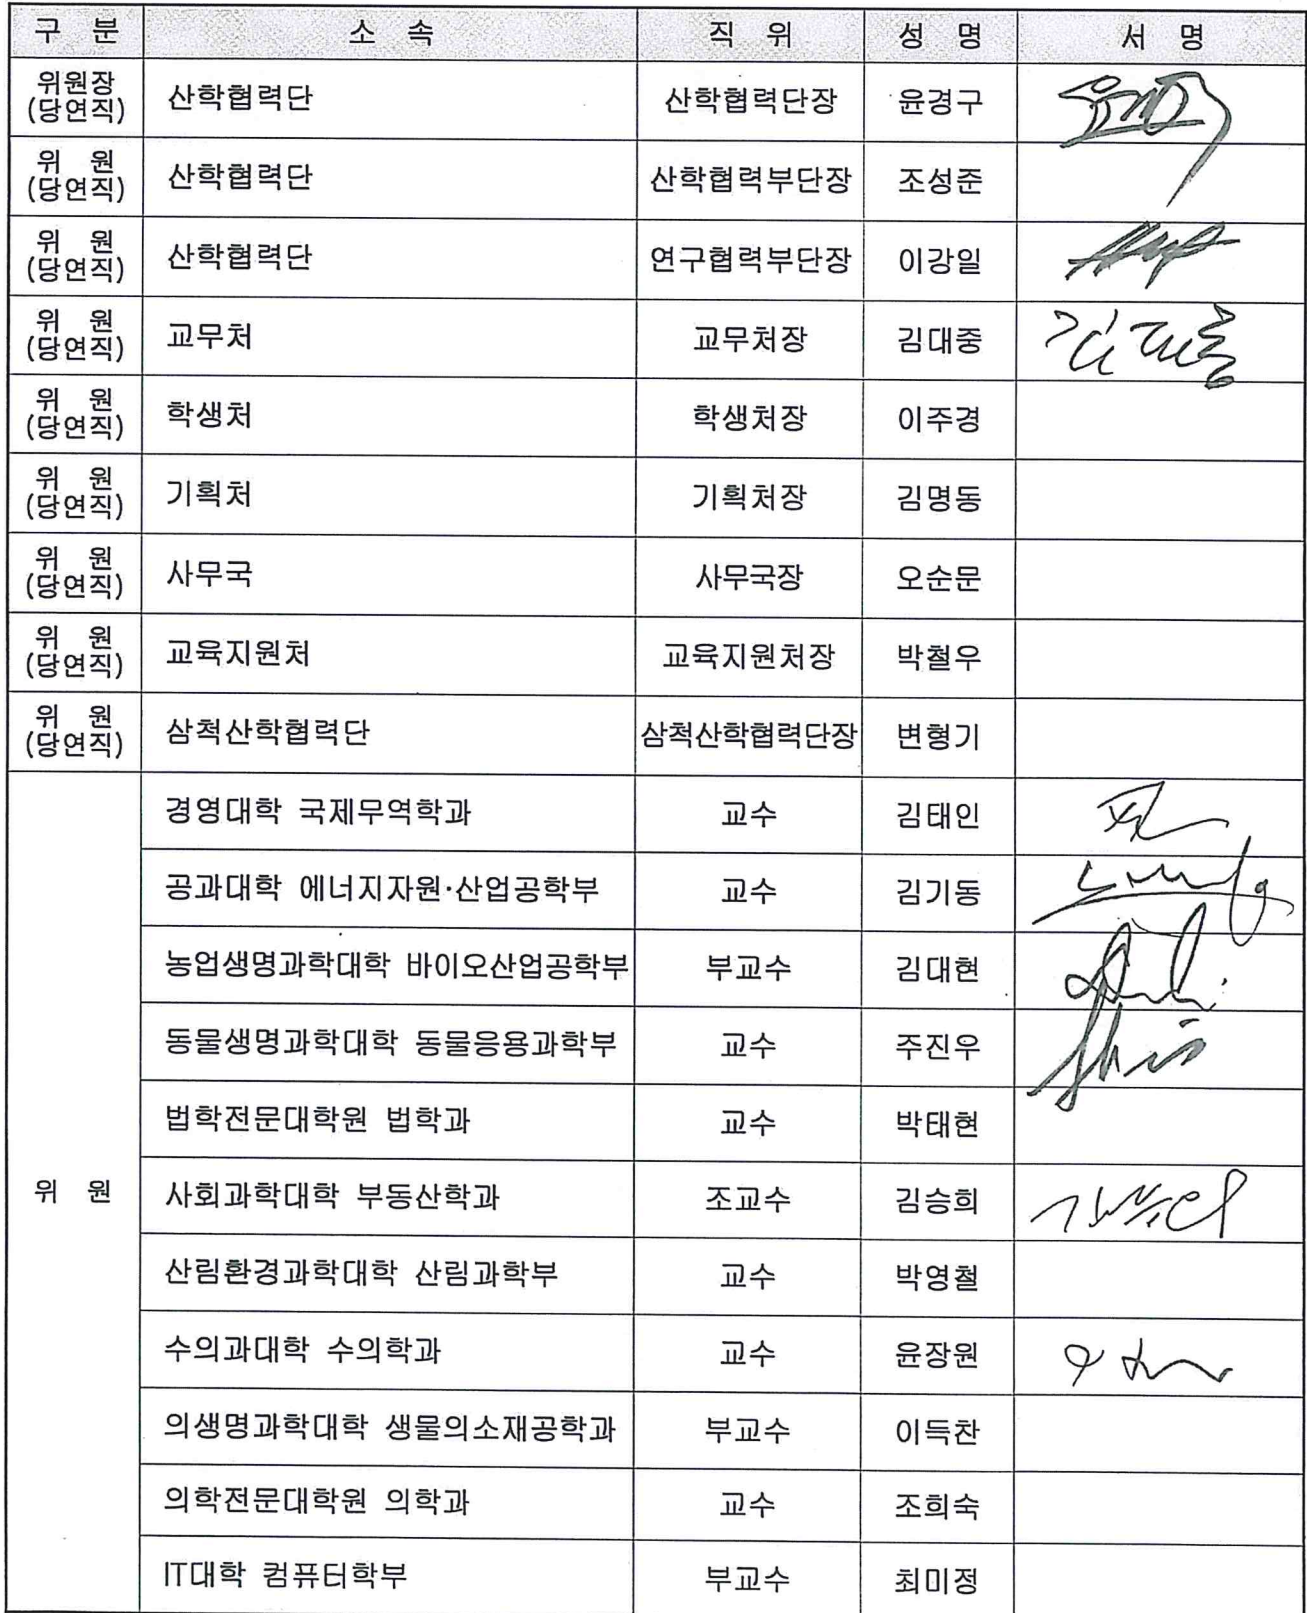 구 분 소 속 직 위 성 명 서 명
위원장
(당연직) 산학협력단 산학협력단장 윤경구
위 원
(당연직) 산학협력단 산학협력부단장 조성준
위 원
(당연직) 산학협력단 연구협력부단장 이강일
위 원
(당연직) 교무처 교무처장 김대중 김대중
위 원
(당연직) 학생처 학생처장 이주경
위 원
(당연직) 기획처 기획처장 김명동
위 원
(당연직) 사무국 사무국장 오순문
위 원
(당연직) 교육지원처 교육지원처장 박철우
위 원
(당연직) 삼척산학협력단 삼척산학협력단장 변형기
위 원
경영대학 국제무역학과 교수 김태인
공과대학 에너지자원·산업공학부 교수 김기동
농업생명과학대학 바이오산업공학부 부교수 김대현
동물생명과학대학 동물응용과학부 교수 주진우
법학전문대학원 법학과 교수 박태현
사회과학대학 부동산학과 조교수 김승희
산림환경과학대학 산림과학부 교수 박영철
수의과대학 수의학과 교수 윤장원
의생명과학대학 생물의소재공학과 부교수 이득찬
의학전문대학원 의학과 교수 조희숙
IT대학 컴퓨터학부 부교수 최미정